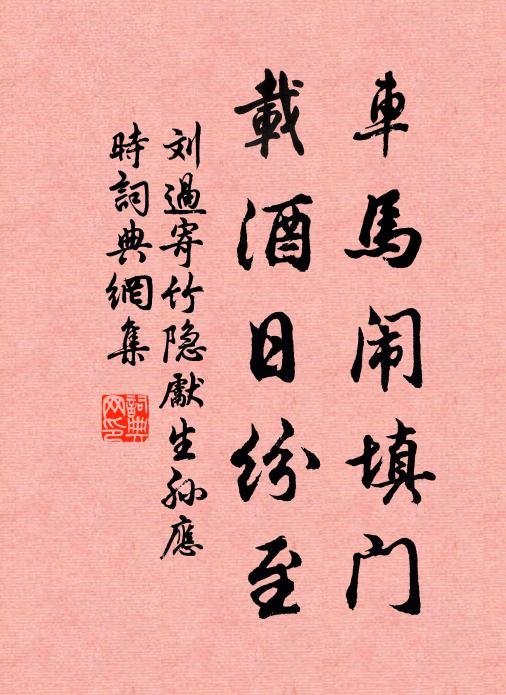 車馬闹填门
載酒日纷至
刘過寄竹隐獻生孙應
時詞典網集
詞典网印